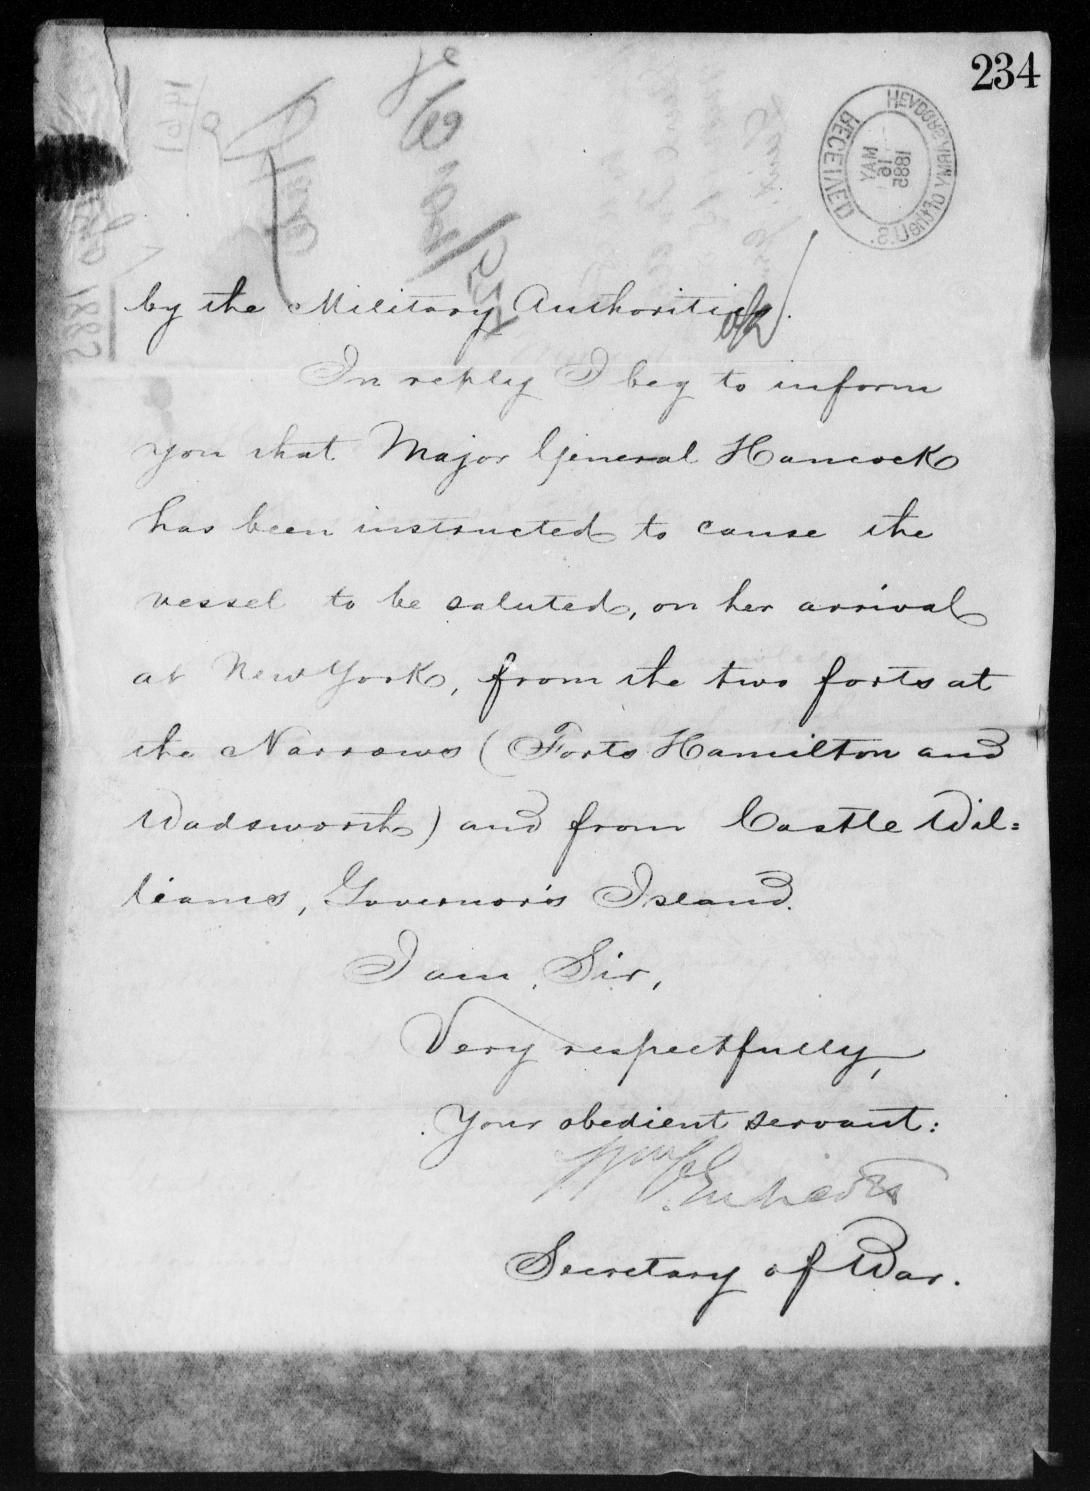 234
HEADQRS ARMY OF THE U.S.
RECEIVED
MAY
16
1885
by the Military Authorities.
In reply I beg to inform
you that Major General Hancock
has been instructed to cause the
vessel to be saluted, on her arrival
at New York, from the two forts at
the Narrows (Forts Hamilton and
Wadsworth) and from Castle Wil=
liams, Governor's Island.
I am, Sir,
Very respectfully,
Your obedient servant:
Wm C. Endicott
Secretary of War.